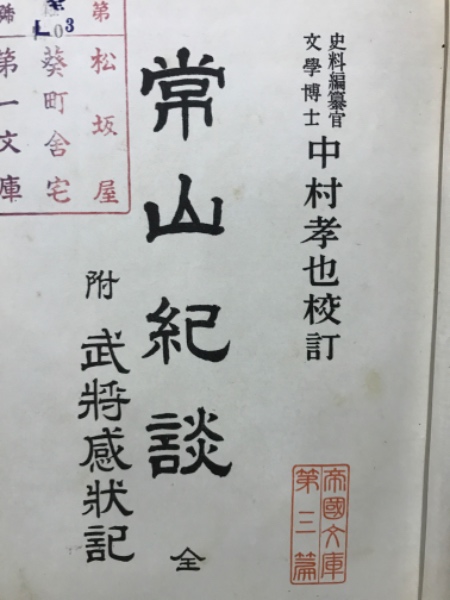 史料編纂官
文學博士
中村孝也校訂
常山紀談
全
附 武將感狀記
帝國文庫
第三篇
第
松坂屋
葵町舍宅
第一文庫